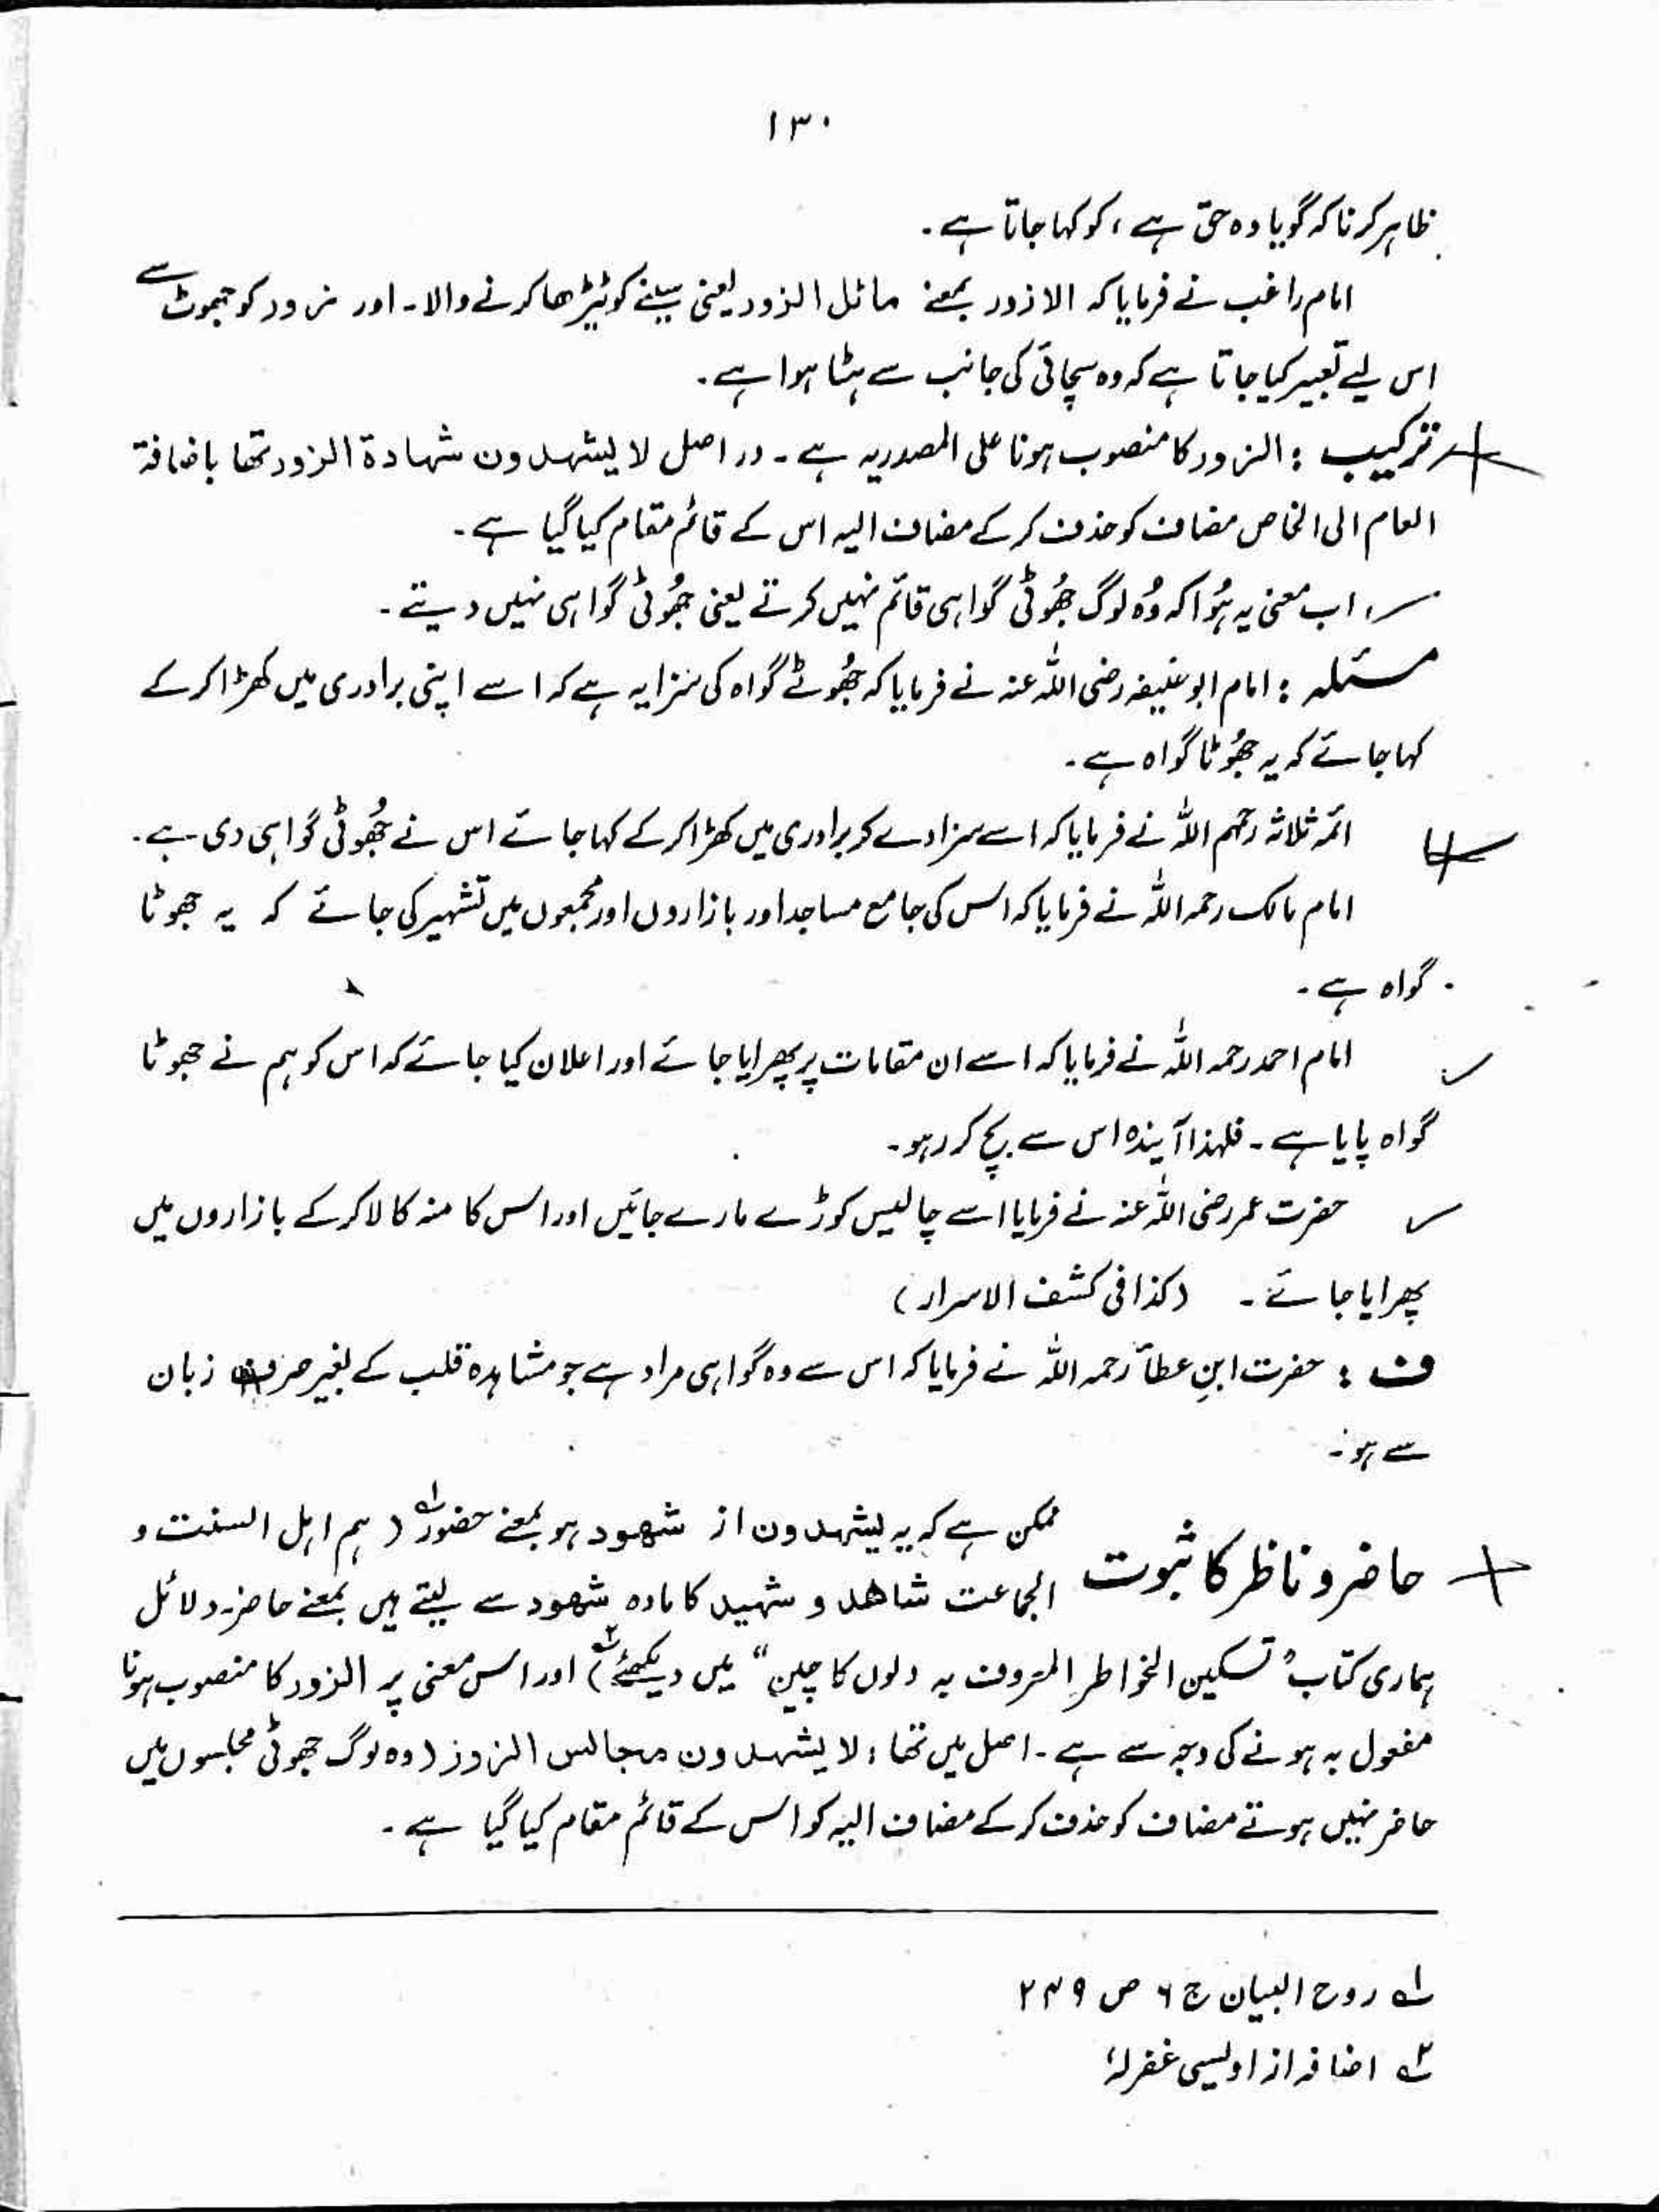 ۱۳۰
ظاہر کرنا کہ گویا وہ حق ہے، کو کہا جاتا ہے۔
امام راغب نے فرمایا کہ الازور بمعنے مائل الزور یعنی سینے کو ٹیڑھا کرنے والا۔ اور زور کو جھوٹ سے
اس لیے تعبیر کیا جاتا ہے کہ وہ سچائی کی جانب سے ہٹا ہوا ہے۔
ترکیب : الزور کا منصوب ہونا علی المصدریہ ہے۔ در اصل لا یشہدون شہادۃ الزور تھا باضافۃ
العام الی الخاص مضاف کو حذف کر کے مضاف الیہ اس کے قائم مقام کیا گیا ہے۔
اب معنی یہ ہُوا کہ وُہ لوگ جُھوٹی گواہی قائم نہیں کرتے یعنی جُھوٹی گواہی نہیں دیتے۔
مسئلہ : امام ابوحنیفہ رضی اللہ عنہ نے فرمایا کہ جُھوٹے گواہ کی سزا یہ ہے کہ اسے اپنی برادری میں کھڑا کر کے
کہا جائے کہ یہ جُھوٹا گواہ ہے۔
ائمہ ثلاثہ رحمہم اللہ نے فرمایا کہ اسے سزا دے کر برادری میں کھڑا کر کے کہا جائے اس نے جُھوٹی گواہی دی ہے۔
امام مالک رحمہ اللہ نے فرمایا کہ اس کی جامع مساجد اور بازاروں اور مجمعوں میں تشہیر کی جائے کہ یہ جھوٹا
گواہ ہے۔
امام احمد رحمہ اللہ نے فرمایا کہ اسے ان مقامات پر پھرایا جائے اور اعلان کیا جائے کہ اس کو ہم نے جھوٹا
گواہ پایا ہے۔ فلہٰذا آیندہ اس سے بچ کر رہو۔
حضرت عمر رضی اللہ عنہ نے فرمایا اسے چالیس کوڑے مارے جائیں اور اس کا منہ کالا کر کے بازاروں میں
پھرایا جائے۔ (کذا فی کشف الاسرار)
ف : حضرت ابنِ عطاؔ رحمہ اللہ نے فرمایا کہ اس سے وہ گواہی مراد ہے جو مشاہدہ قلب کے بغیر صرف زبان
سے ہو۔
حاضر و ناظر کا ثبوت
ممکن ہے کہ یہ یشہدون از شھود ہو بمعنے حضور۱ (ہم اہل السنت و
الجماعت شاھد و شہید کا مادہ شھود سے لیتے ہیں بمعنے حاضر۔ دلائل
ہماری کتاب "تسکین الخواطر المعروف بہ دلوں کا چین" میں دیکھئے۲) اور اس معنی پر الزور کا منصوب ہونا
مفعول بہ ہونے کی وجہ سے ہے۔ اصل میں تھا، لا یشہدون مجالس الزور (وہ لوگ جھوٹی مجلسوں میں
حاضر نہیں ہوتے مضاف کو حذف کر کے مضاف الیہ کو اس کے قائم مقام کیا گیا ہے۔
۱ روح البیان ج ۶ ص ۲۴۹
۲ اضافہ از اویسی غفرلہٗ